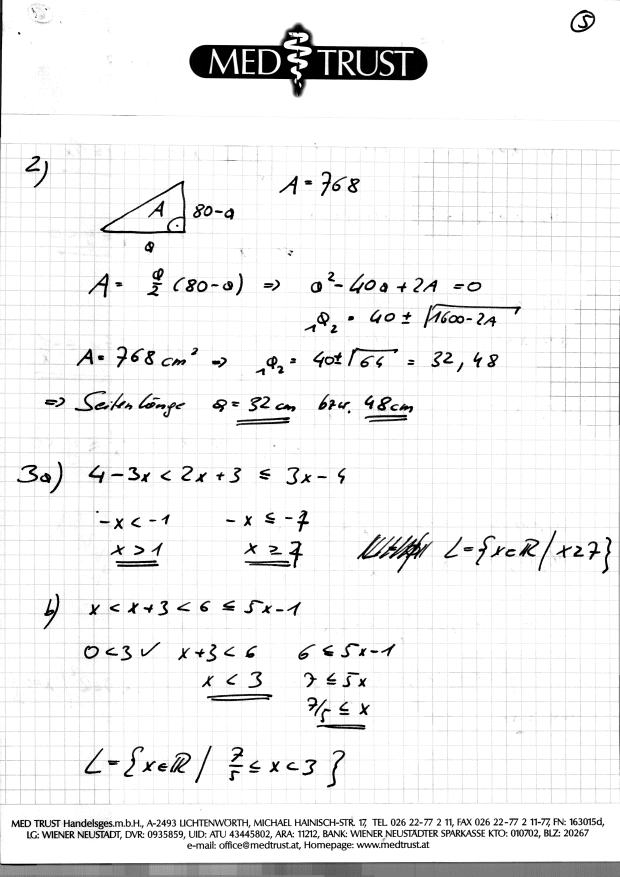 5
MED TRUST
2)
A = 768
A
80-a
a
A = a/2 (80-a) => a² - 40a + 2A = 0
₁a₂ = 40 ± √1600-2A
A = 768 cm² => ₁a₂ = 40±√64 = 32, 48
=> Seitenlänge a = 32 cm bzw. 48cm
3a) 4-3x < 2x+3 ≤ 3x-4
-x < -1 -x ≤ -7
x > 1 x ≥ 7 L={x∈ℝ / x≥7}
b) x < x+3 < 6 ≤ 5x-1
0<3 ✓ x+3<6 6 ≤ 5x-1
x < 3 7 ≤ 5x
7/5 ≤ x
L={x∈ℝ / 7/5 ≤ x < 3}
MED TRUST Handelsges.m.b.H., A-2493 LICHTENWÖRTH, MICHAEL HAINISCH-STR. 17, TEL. 026 22-77 2 11, FAX 026 22-77 2 11-77, FN: 163015d,
LG: WIENER NEUSTADT, DVR: 0935859, UID: ATU 43445802, ARA: 11212, BANK: WIENER NEUSTÄDTER SPARKASSE KTO: 010702, BLZ: 20267
e-mail: office@medtrust.at, Homepage: www.medtrust.at